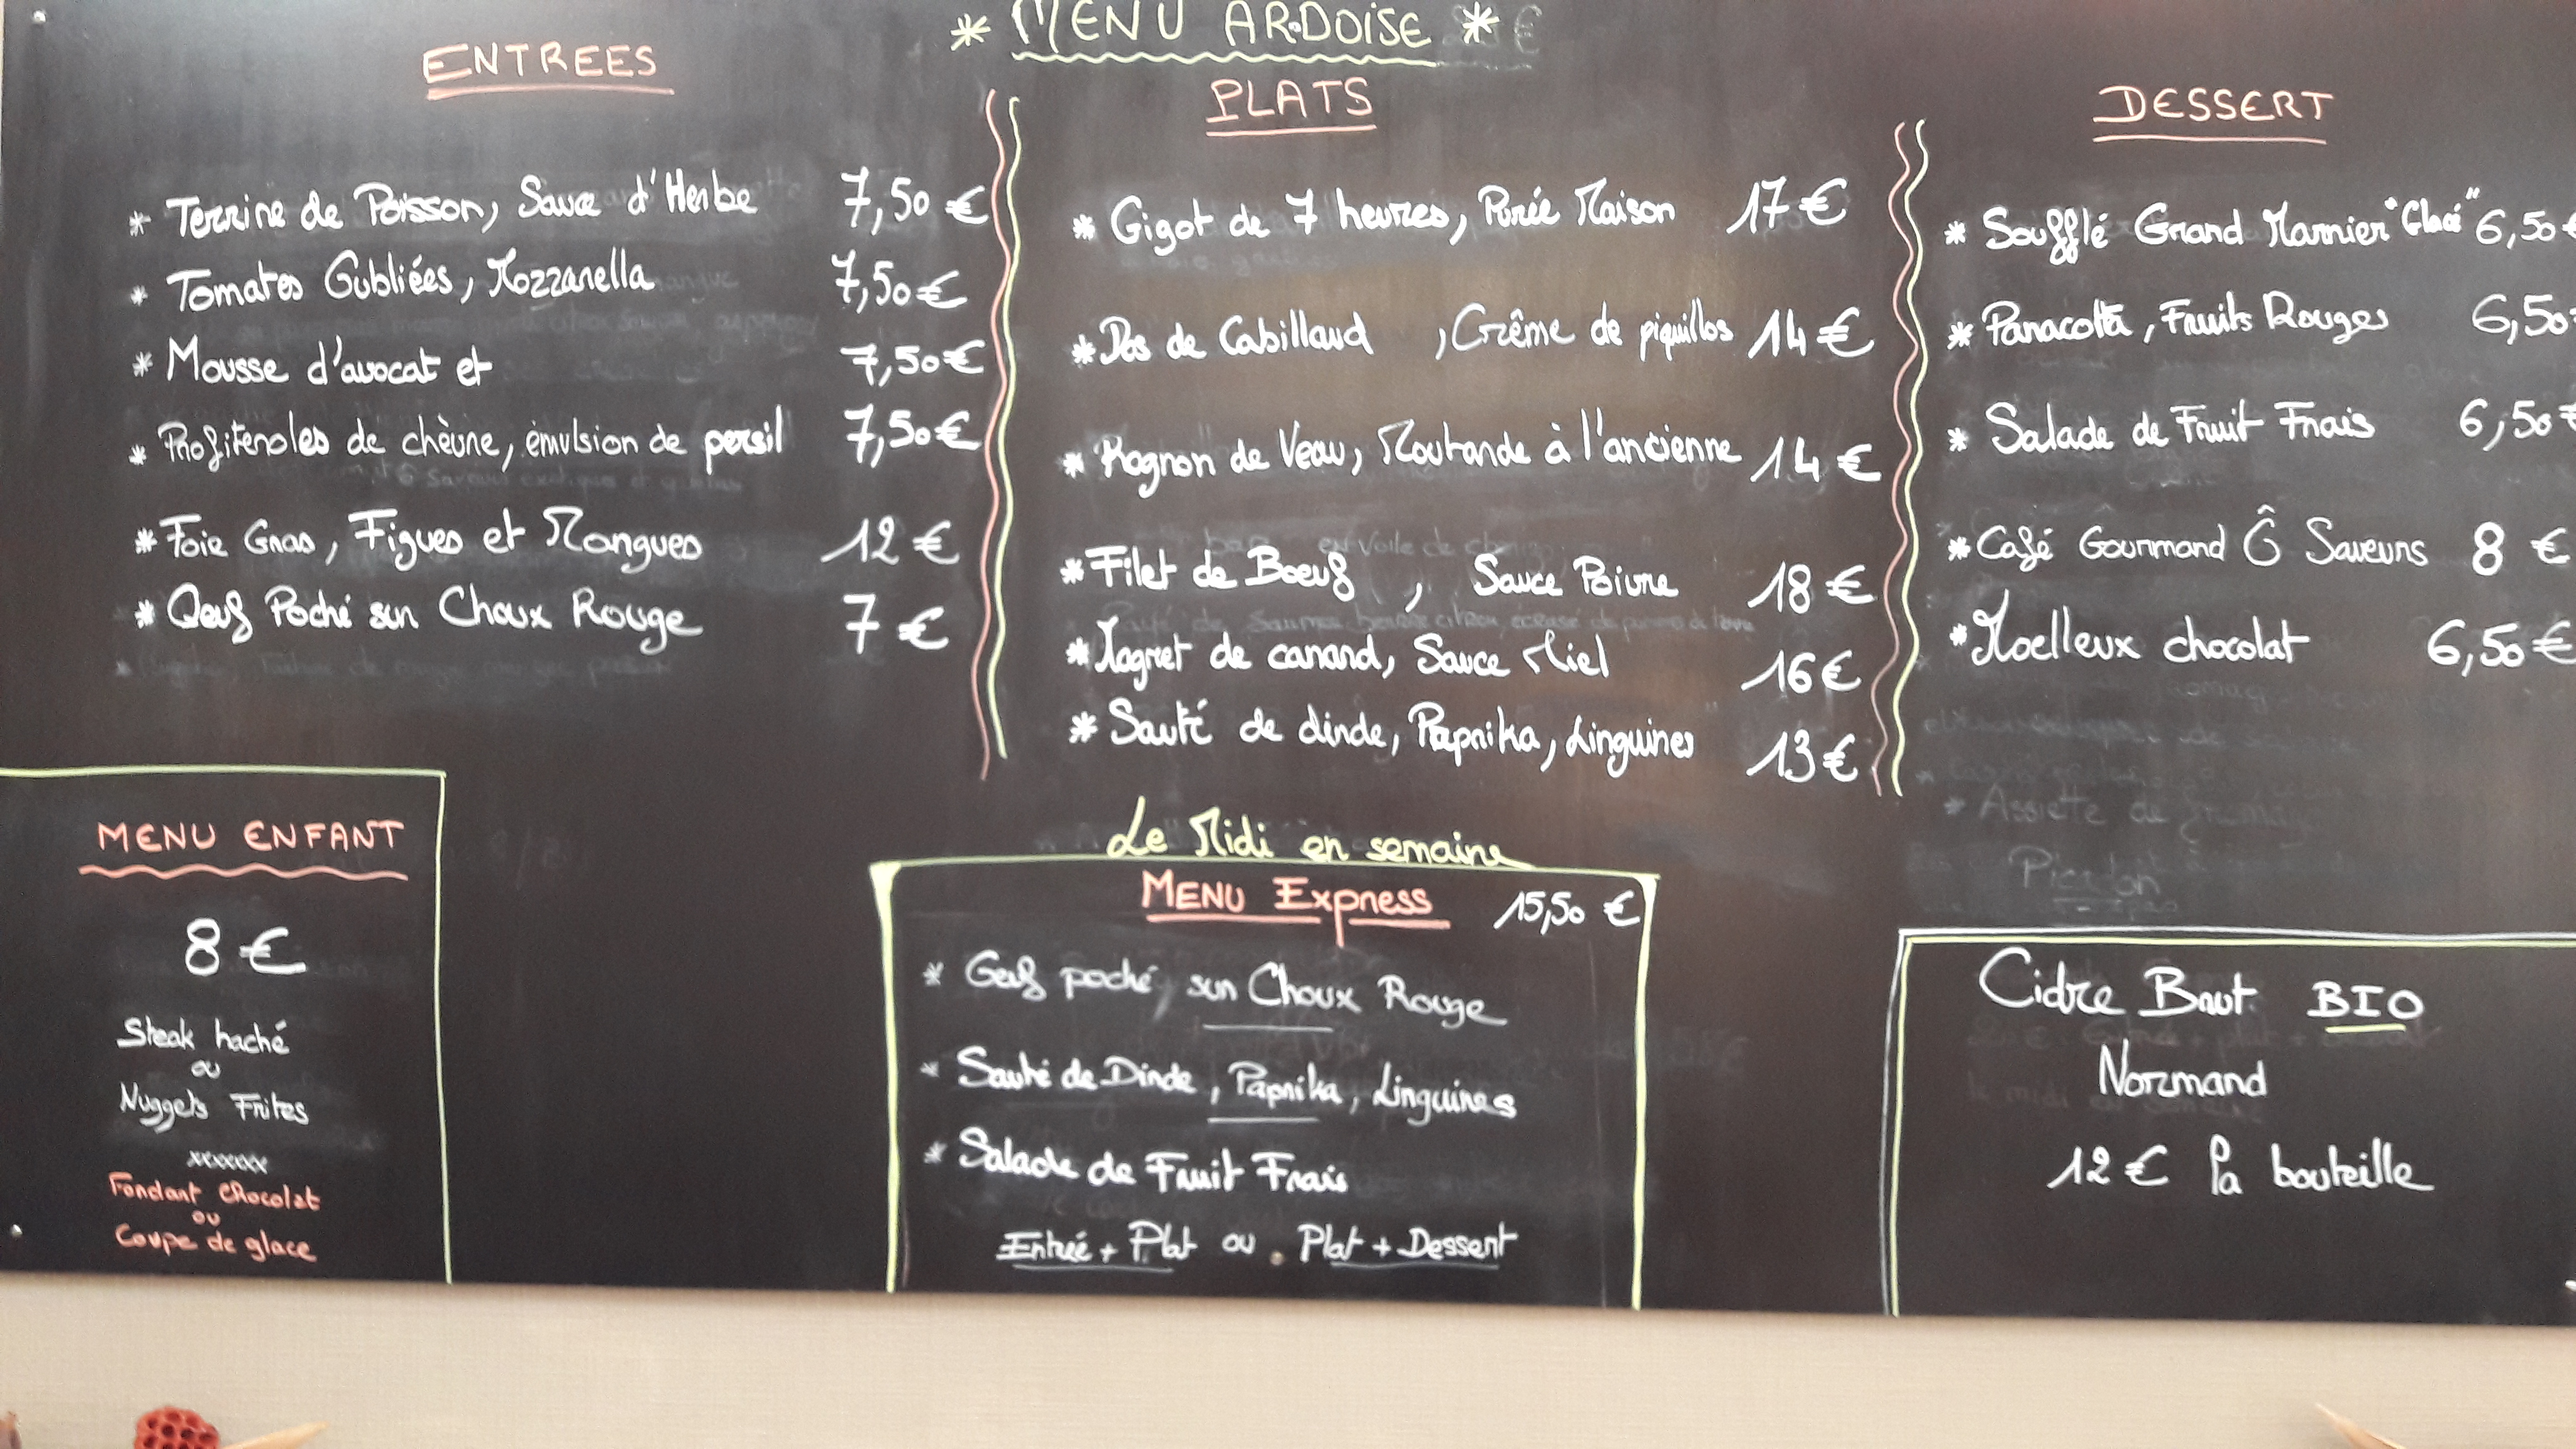 * MENU ARDOISE *
ENTREES
* Terrine de Poisson, Sauce d'Herbe 7,50 €
* Tomates Oubliées, Mozzarella 7,50 €
* Mousse d'avocat et 7,50 €
* Profiteroles de chèvre, émulsion de persil 7,50 €
* Foie Gras, Figues et Mangues 12 €
* Oeuf Poché sur Choux Rouge 7 €
PLATS
* Gigot de 7 heures, Purée Maison 17 €
* Dos de Cabillaud , Crême de piquillos 14 €
* Rognon de Veau, Moutarde à l'ancienne 14 €
* Filet de Boeuf , Sauce Poivre 18 €
* Magret de canard, Sauce Miel 16 €
* Sauté de dinde, Paprika, Linguines 13 €
DESSERT
* Soufflé Grand Marnier "Glacé" 6,50 €
* Panacotta, Fruits Rouges 6,50
* Salade de Fruit Frais 6,50 €
* Café Gourmand Ô Saveurs 8 €
* Moelleux chocolat 6,50 €
MENU ENFANT
8 €
Steak haché
ou
Nuggets Frites
xxxxxxx
Fondant chocolat
ou
Coupe de glace
Le Midi en semaine
MENU Express 15,50 €
* Oeuf poché sur Choux Rouge
* Sauté de Dinde, Paprika, Linguines
* Salade de Fruit Frais
Entrée + Plat ou . Plat + Dessert
Cidre Brut BIO
Normand
12 € la bouteille